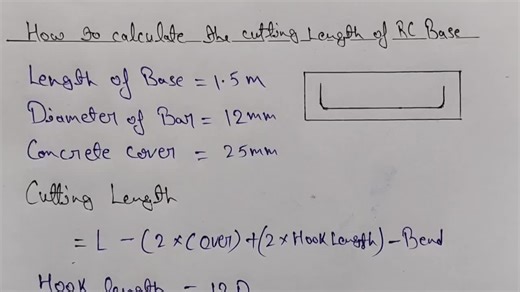 How to calculate the cutting Length of RC Base
Length of Base = 1.5 m
Diameter of Bar = 12mm
Concrete cover = 25mm
Cutting Length
= L - (2 × Cover) + (2 × Hook Length) - Bend
Hook length = 12D